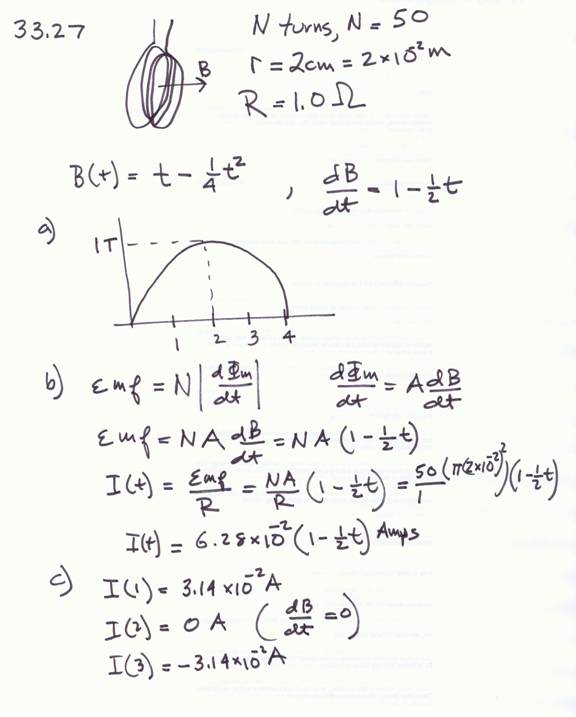 33.27
N turns, N = 50
r = 2cm = 2×10⁻²m
R = 1.0 Ω
B
B(t) = t - 1/4 t² , dB/dt = 1 - 1/2 t
a)
1T
1 2 3 4
b) Emf = N |dΦm/dt| dΦm/dt = A dB/dt
Emf = NA dB/dt = NA (1 - 1/2 t)
I(t) = Emf/R = NA/R (1 - 1/2 t) = 50/1 (π(2×10⁻²)²)(1 - 1/2 t)
I(t) = 6.28×10⁻² (1 - 1/2 t) Amps
c) I(1) = 3.14×10⁻² A
I(2) = 0 A (dB/dt = 0)
I(3) = -3.14×10⁻² A